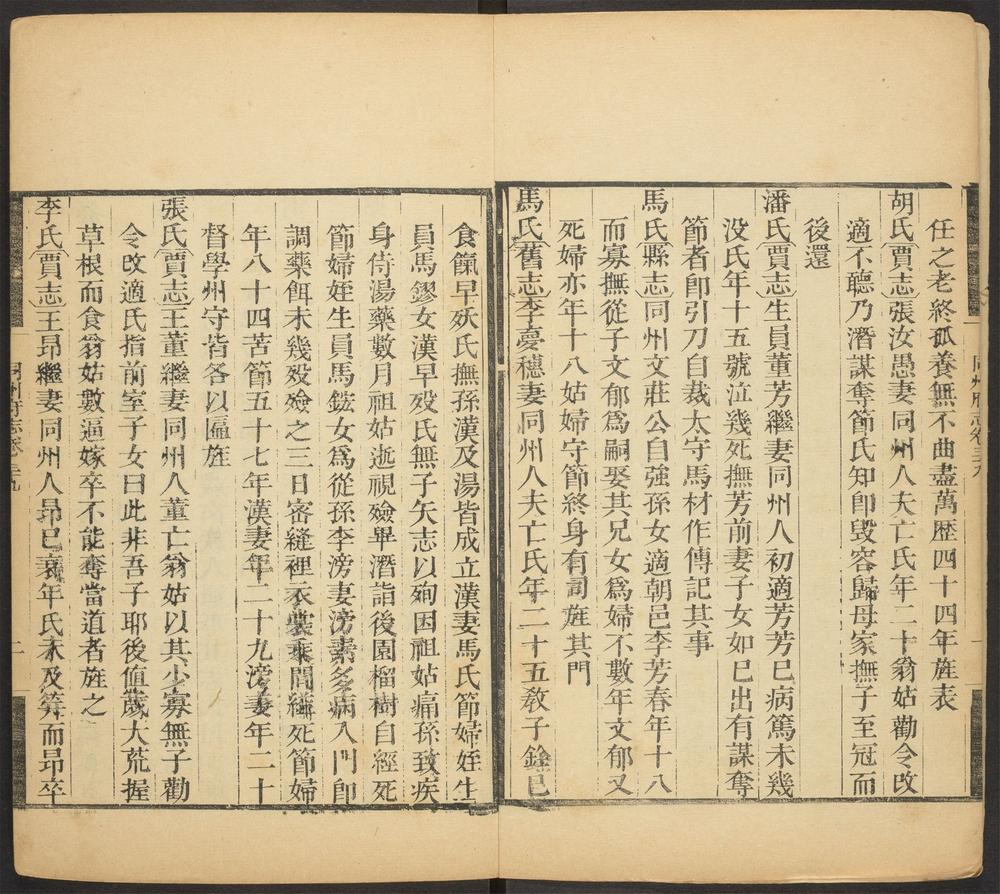 任之老終孤養無不曲盡萬歷四十四年旌表
胡氏賈志張汝愚妻同州人夫亡氏年二十翁姑勸令改
適不聽乃潛謀奪節氏知卽毀容歸母家撫子至冠而
後還
潘氏賈志生員董芳繼妻同州人初適芳芳已病篤未幾
没氏年十五號泣幾死撫芳前妻子女如已出有謀奪
節者卽引刀自裁太守馬材作傳記其事
馬氏縣志同州文莊公自強孫女適朝邑李芳春年十八
而寡撫從子文郁爲嗣娶其兄女爲婦不數年文郁又
死婦亦年十八姑婦守節終身有司旌其門
馬氏舊志李憂穗妻同州人夫亡氏年二十五敎子餘邑
食餼早殀氏撫孫漢及湯皆成立漢妻馬氏節婦姪生
員馬鏐女漢早歿氏無子矢志以殉因祖姑痛孫致疾
身侍湯藥數月祖姑逝視殮畢潛詣後園榴樹自經死
節婦姪生員馬鋐女爲從孫李滂妻滂素多病入門卽
調藥餌未幾歿殮之三日密縫裡衣裳乘間縊死節婦
年八十四苦節五十七年漢妻年二十九滂妻年二十
督學州守皆各以匾旌
張氏賈志王董繼妻同州人董亡翁姑以其少寡無子勸
令改適氏指前室子女曰此非吾子耶後值歲大荒握
草根而食翁姑數逼嫁卒不能奪當道者旌之
李氏賈志王昂繼妻同州人昂已衰年氏未及笄而昂卒
同州府志卷
二